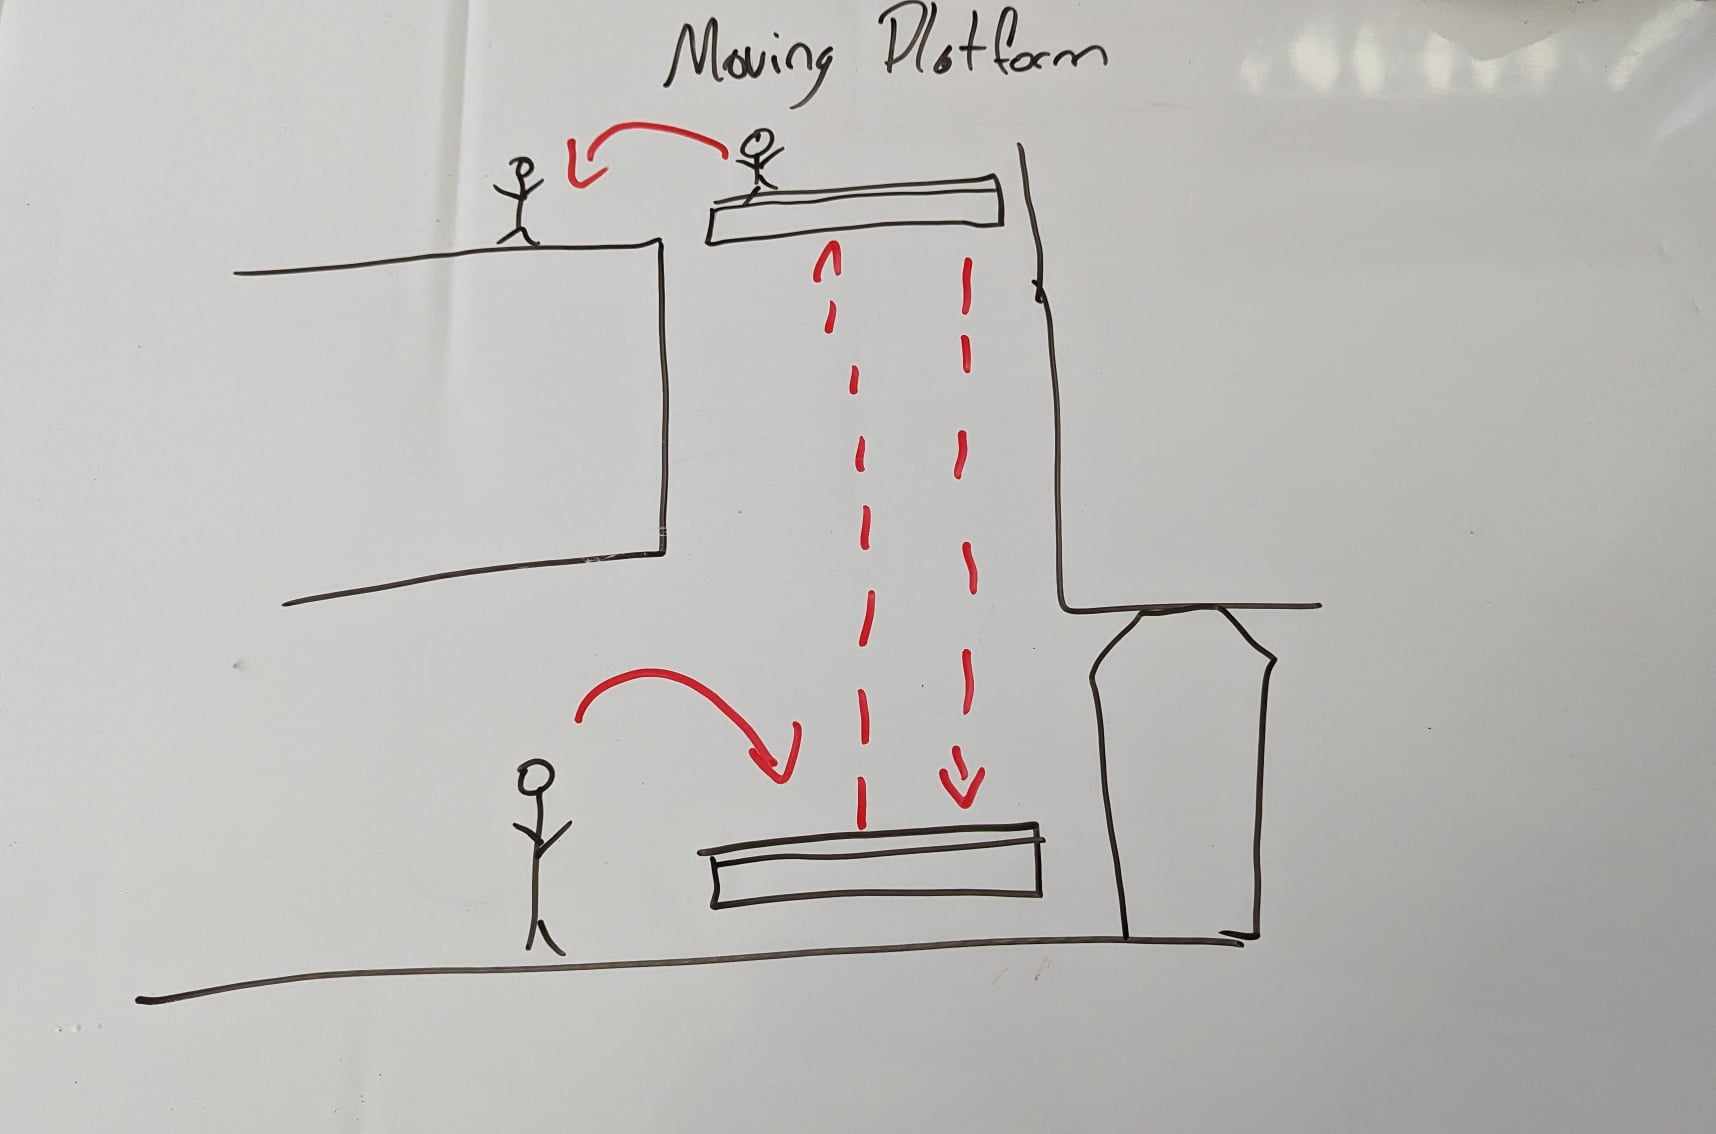 Moving Platform